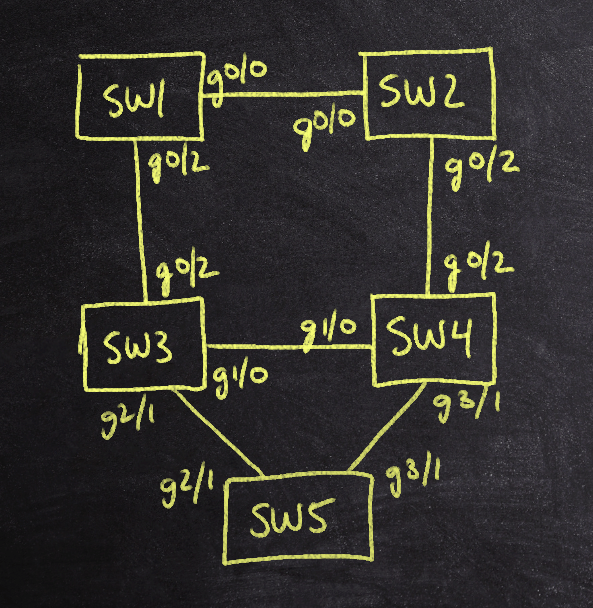 SW1
g0/0
SW2
g0/0
g0/2
g0/2
g0/2
g0/2
SW3
g1/0
SW4
g1/0
g2/1
g3/1
g2/1
g3/1
SW5